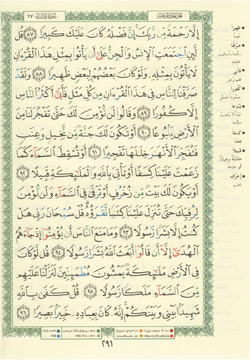 ١٧
إِلَّا رَحْمَةً مِّن رَّبِّكَ إِنَّ فَضْلَهُ كَانَ عَلَيْكَ كَبِيرًا ٨٧ قُل
لَّئِنِ اجْتَمَعَتِ الْإِنسُ وَالْجِنُّ عَلَىٰ أَن يَأْتُوا بِمِثْلِ هَٰذَا الْقُرْآنِ
لَا يَأْتُونَ بِمِثْلِهِ وَلَوْ كَانَ بَعْضُهُمْ لِبَعْضٍ ظَهِيرًا ٨٨ وَلَقَدْ
صَرَّفْنَا لِلنَّاسِ فِي هَٰذَا الْقُرْآنِ مِن كُلِّ مَثَلٍ فَأَبَىٰ أَكْثَرُ النَّاسِ
إِلَّا كُفُورًا ٨٩ وَقَالُوا لَن نُّؤْمِنَ لَكَ حَتَّىٰ تَفْجُرَ لَنَا مِنَ
الْأَرْضِ يَنبُوعًا ٩٠ أَوْ تَكُونَ لَكَ جَنَّةٌ مِّن نَّخِيلٍ وَعِنَبٍ
فَتُفَجِّرَ الْأَنْهَارَ خِلَالَهَا تَفْجِيرًا ٩١ أَوْ تُسْقِطَ السَّمَاءَ كَمَا
زَعَمْتَ عَلَيْنَا كِسَفًا أَوْ تَأْتِيَ بِاللَّهِ وَالْمَلَائِكَةِ قَبِيلًا ٩٢
أَوْ يَكُونَ لَكَ بَيْتٌ مِّن زُخْرُفٍ أَوْ تَرْقَىٰ فِي السَّمَاءِ وَلَن نُّؤْمِنَ
لِرُقِيِّكَ حَتَّىٰ تُنَزِّلَ عَلَيْنَا كِتَابًا نَّقْرَؤُهُ قُلْ سُبْحَانَ رَبِّي هَلْ
كُنتُ إِلَّا بَشَرًا رَّسُولًا ٩٣ وَمَا مَنَعَ النَّاسَ أَن يُؤْمِنُوا إِذْ جَاءَهُمُ
الْهُدَىٰ إِلَّا أَن قَالُوا أَبَعَثَ اللَّهُ بَشَرًا رَّسُولًا ٩٤ قُل لَّوْ كَانَ
فِي الْأَرْضِ مَلَائِكَةٌ يَمْشُونَ مُطْمَئِنِّينَ لَنَزَّلْنَا عَلَيْهِم
مِّنَ السَّمَاءِ مَلَكًا رَّسُولًا ٩٥ قُلْ كَفَىٰ بِاللَّهِ
شَهِيدًا بَيْنِي وَبَيْنَكُمْ إِنَّهُ كَانَ بِعِبَادِهِ خَبِيرًا بَصِيرًا ٩٦
٢٩١